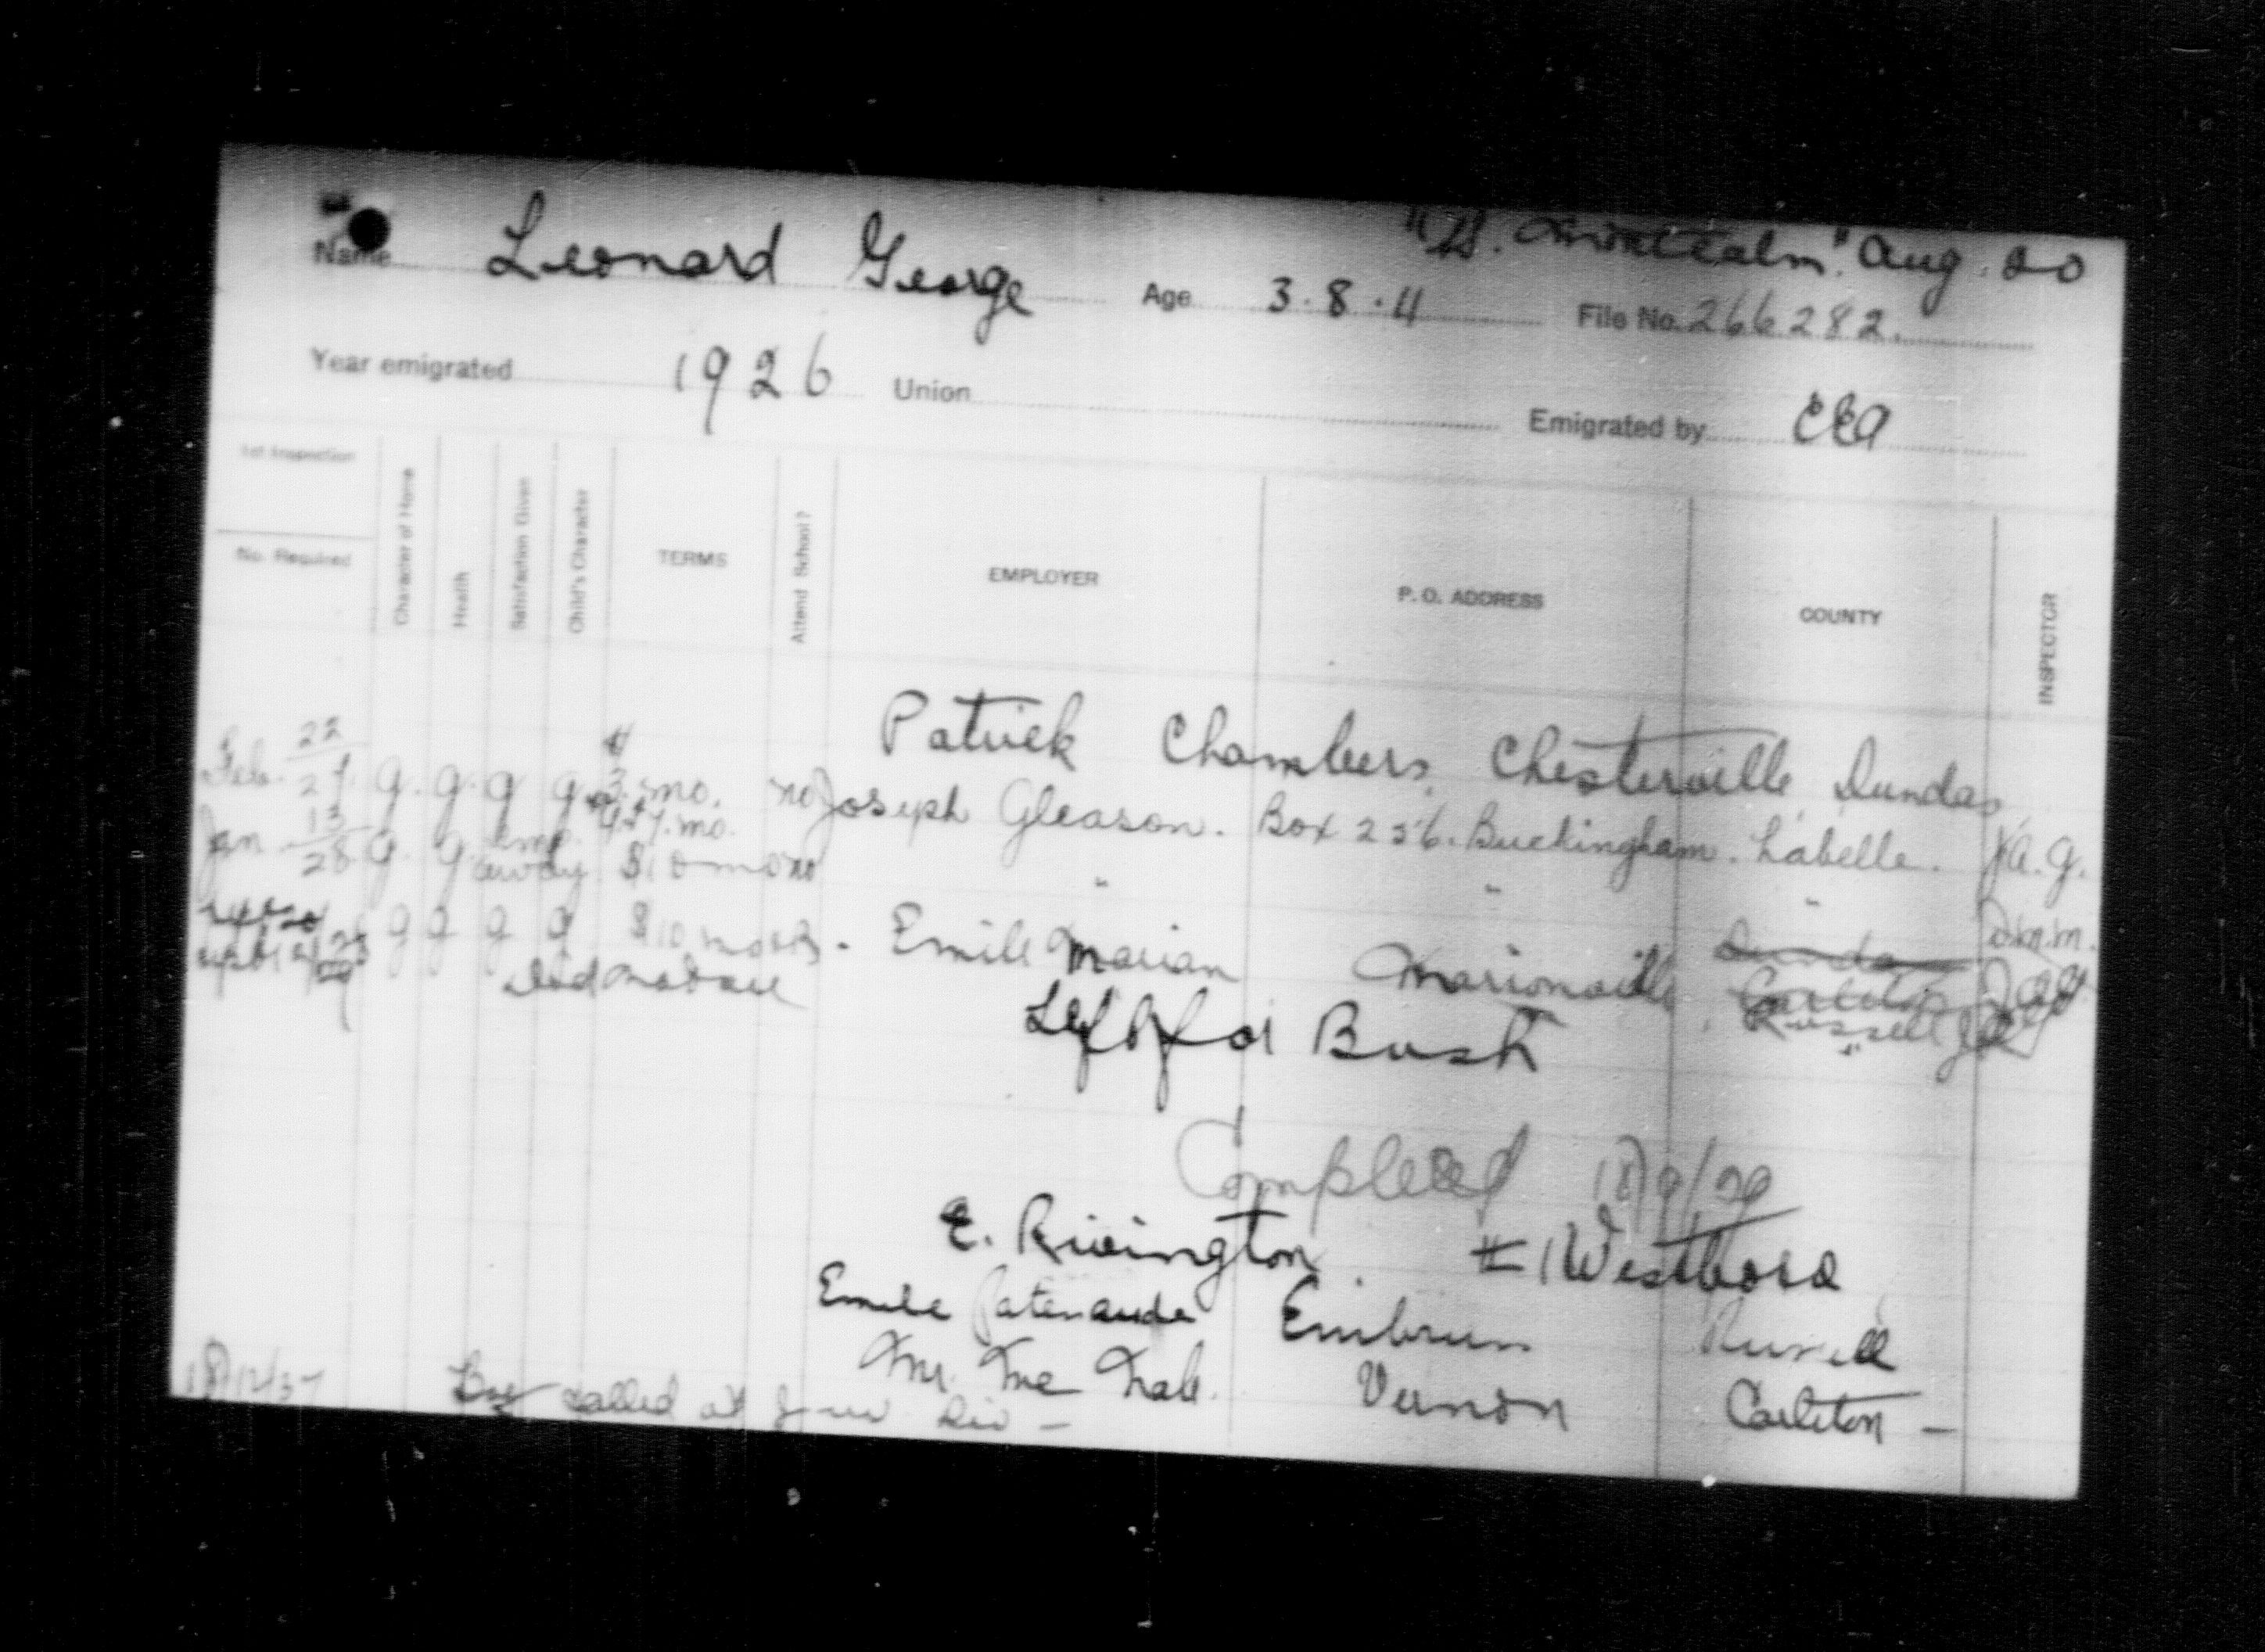 "Montcalm" Aug. 20
Name Leonard George Age 3.8.11 File No. 266282.
Year emigrated 1926 Union Emigrated by CEA
1st Inspection
No. Required Character of Home Health Satisfaction Given Child's Character TERMS Attend School? EMPLOYER P. O. ADDRESS COUNTY INSPECTOR
Patrick Chambers, Chesterville, Dundas
Feb. 22/27. g. g. g g 3. mo. no Joseph Gleason. Box 256. Buckingham. Labelle. A.G.
Jan. 13/28 g. g. emp. away $10 mo no " " " D.M.M.
g g g g $10 Emile Marian Marionville Dundas
Sept Carleton Russell
Left for Bush
Completed 18/9/29
E. Rivington #1 Westboro
Emile Patenaude Embrun Russell
Mr. Mc Nab. Vernon Carleton —
18/12/37 Boy called at Div —